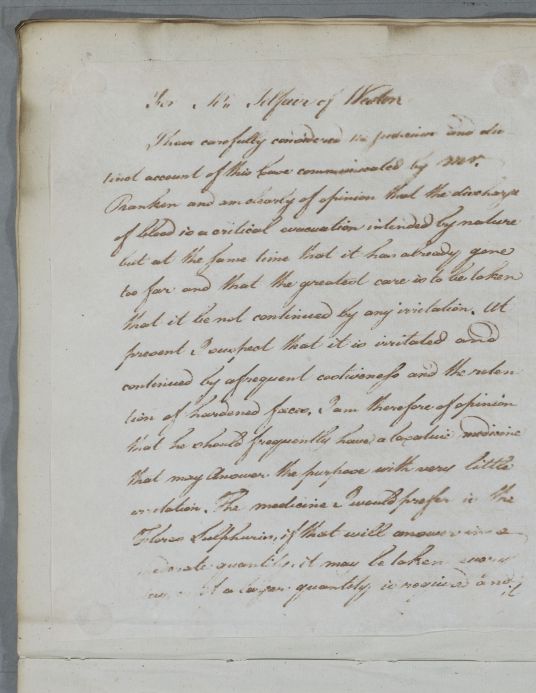 For Mr. Telfair of Weston
I have carefully considered the judicious and dis
tinct account of this Case communicated by Mr.
Ranken and am clearly of opinion that the discharge
of blood is a critical evacuation intended by nature
but at the same time that it has already gone
too far and that the greatest care is to be taken
that it be not continued by any irritation. At
present I suspect that it is irritated and
continued by a frequent costiveness and the reten
tion of hardened faeces. I am therefore of opinion
that he should frequently have a laxative medicine
that may answer the purpose with very little
irritation. The medicine I would prefer is the
Flores Sulphuris, if that will answer in a
moderate quantity, it may be taken every
day, but if a larger quantity is required and